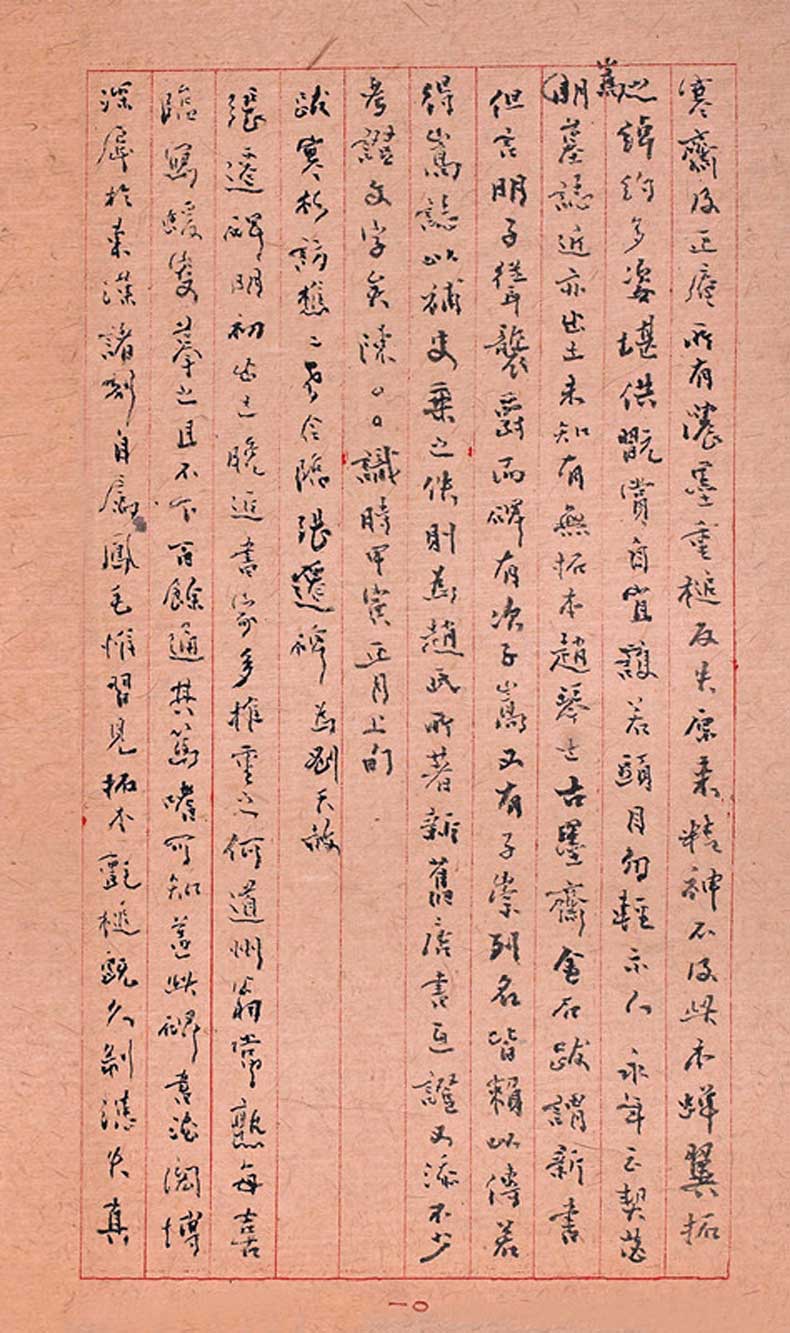 寒齋及正庵所有濃墨重槌反失原來精神不及此本蟬翼拓
之綽約多姿堪供翫賞自宜護若頭目勿輕示人永年至契
嵩
明墓誌近亦出土未知有無拓本趙琴士古墨齋金石跋謂新書
但言明子聳襲爵而碑有次子嵩又有子崇列名皆賴以傳若
得嵩誌以補史乘之佚則為趙氏所著新舊唐書互證又添不少
考證文字矣陳○○識時甲寅正月上旬
跋寞杉訪樵二老合臨張遷碑為劉天放
張遷碑明初出土晚近書家多推重之何道州翁常熟每喜
臨寫蝯叟摹之且不下百餘通其篤嗜可知蓋此碑書法淵博
深厚於東漢諸刻自屬鳳毛惟習見拓本氈槌既久剝漶失真
一○